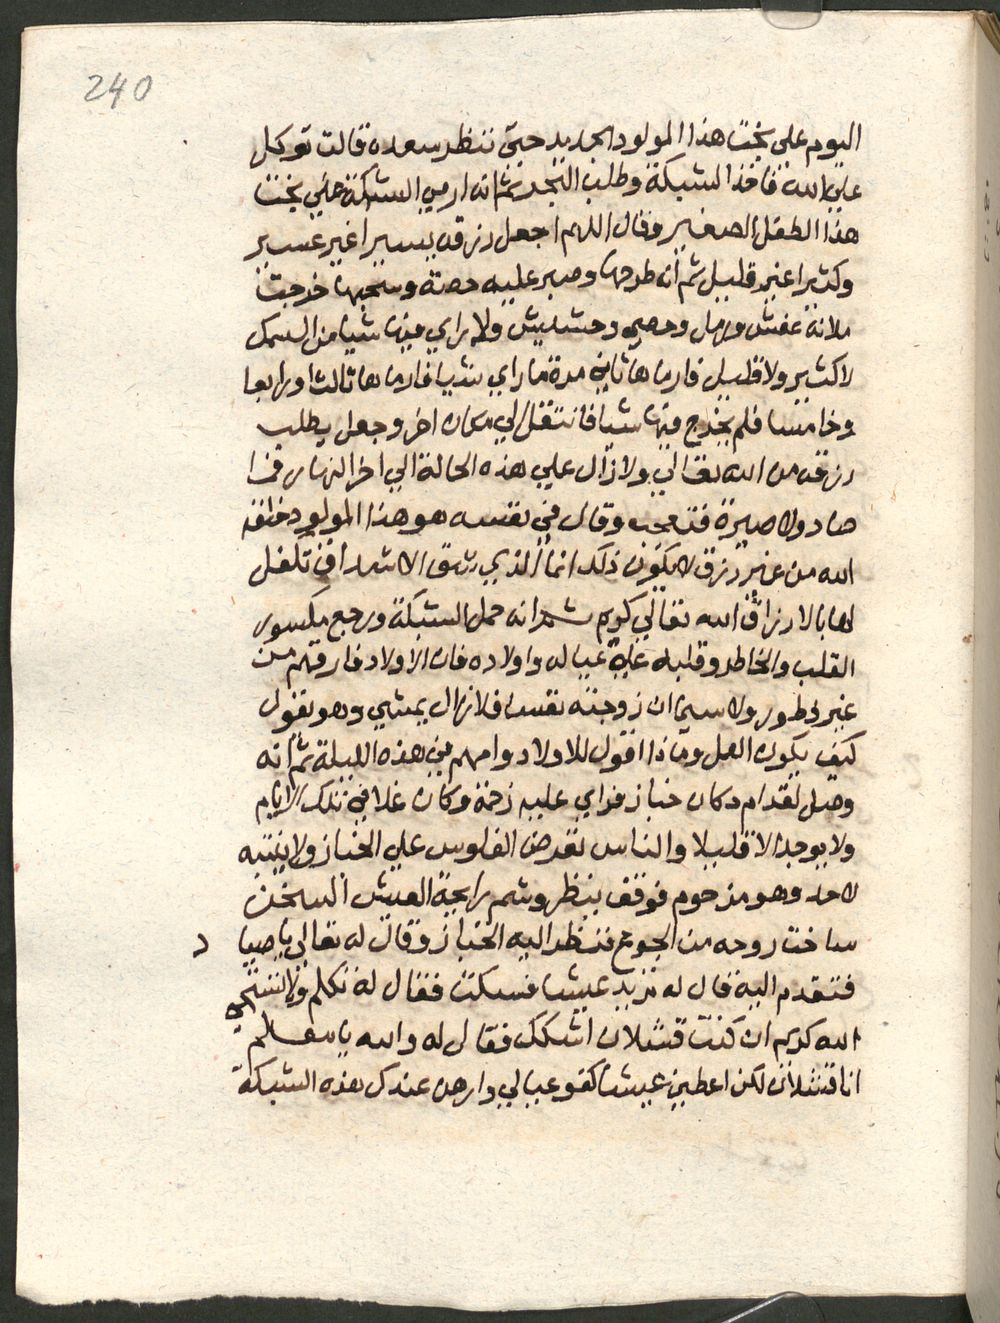 240
اليوم على بخت هذا المولود الجديد حتي ننظر سعده قالت توكل
علي الله فاخذ الشبكة وطلب البحر ثم انه ارمي الشبكة علي بخت
هذا الطفل الصغير وقال اللهم اجعل رزقه يسيرا غير عسير
وكثيرا غير قليل ثم انه طرحها وصبر عليه حصة وسحبها خرجت
ملانة عفش ورمل وحصي وحشيش ولا راي فيها شيا من السمك
لا كثير ولا قليل فارماها ثاني مرة ما راي شيا فارماها ثالث ورابعا
وخامسا فلم يخرج فيها شيا فانتقل الي مكان اخر وجعل يطلب
رزقه من الله تعالي ولا زال علي هذه الحالة الي اخر النهار فما
صاد ولا صيرة فتعجب وقال في نفسه هو هذا المولود خلقه
الله من غير رزق لا يكون ذلك انما الذي شق الاشداق تكفل
لها بالارزاق الله تعالي كريم ثم انه حمل الشبكة ورجع مكسور
القلب والخاطر وقلبه علي عياله واولاده فان الاولاد فارقهم من
غير فطور ولا سيما ان زوجته نفسا فلا زال يمشي وهو يقول
كيف يكون العمل وماذا اقول للاولاد وامهم في هذه الليلة ثم انه
وصل لقدام دكان خباز فراي عليه زحمة وكان غلا في تلك الايام
ولا يوجد الا قليلا والناس تعرض الفلوس علي الخباز ولا ينتبه
لاحد وهو مزحوم فوقف ينظر وشم رايحة العيش السخن
ساخت روحه من الجوع فنظر اليه الخباز وقال له تعالي يا صياد
فتقدم اليه قال له تريد عيشا فسكت فقال له تكلم ولا تستحي
الله كريم ان كنت قشلان اشكك فقال له والله يا معلم
انا قشلان لكن اعطيني عيشا كفو عيالي وارهن عندك هذه الشبكة